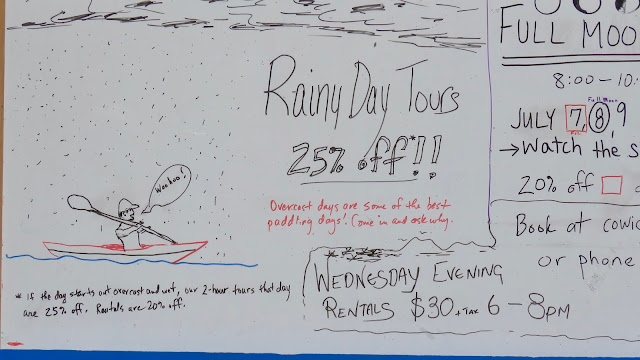 Rainy Day Tours
25% off*!!
Overcast days are some of the best
paddling days! Come in and ask why.
Woohoo!
* If the day starts out overcast and wet, our 2-hour tours that day
are 25% off. Rentals are 20% off.
Wednesday Evening
Rentals $30 + tax 6-8pm
Full Moo
8:00-10
Full Moon
July 7, 8, 9
→ Watch the s
20% off
Book at cowic
or phone